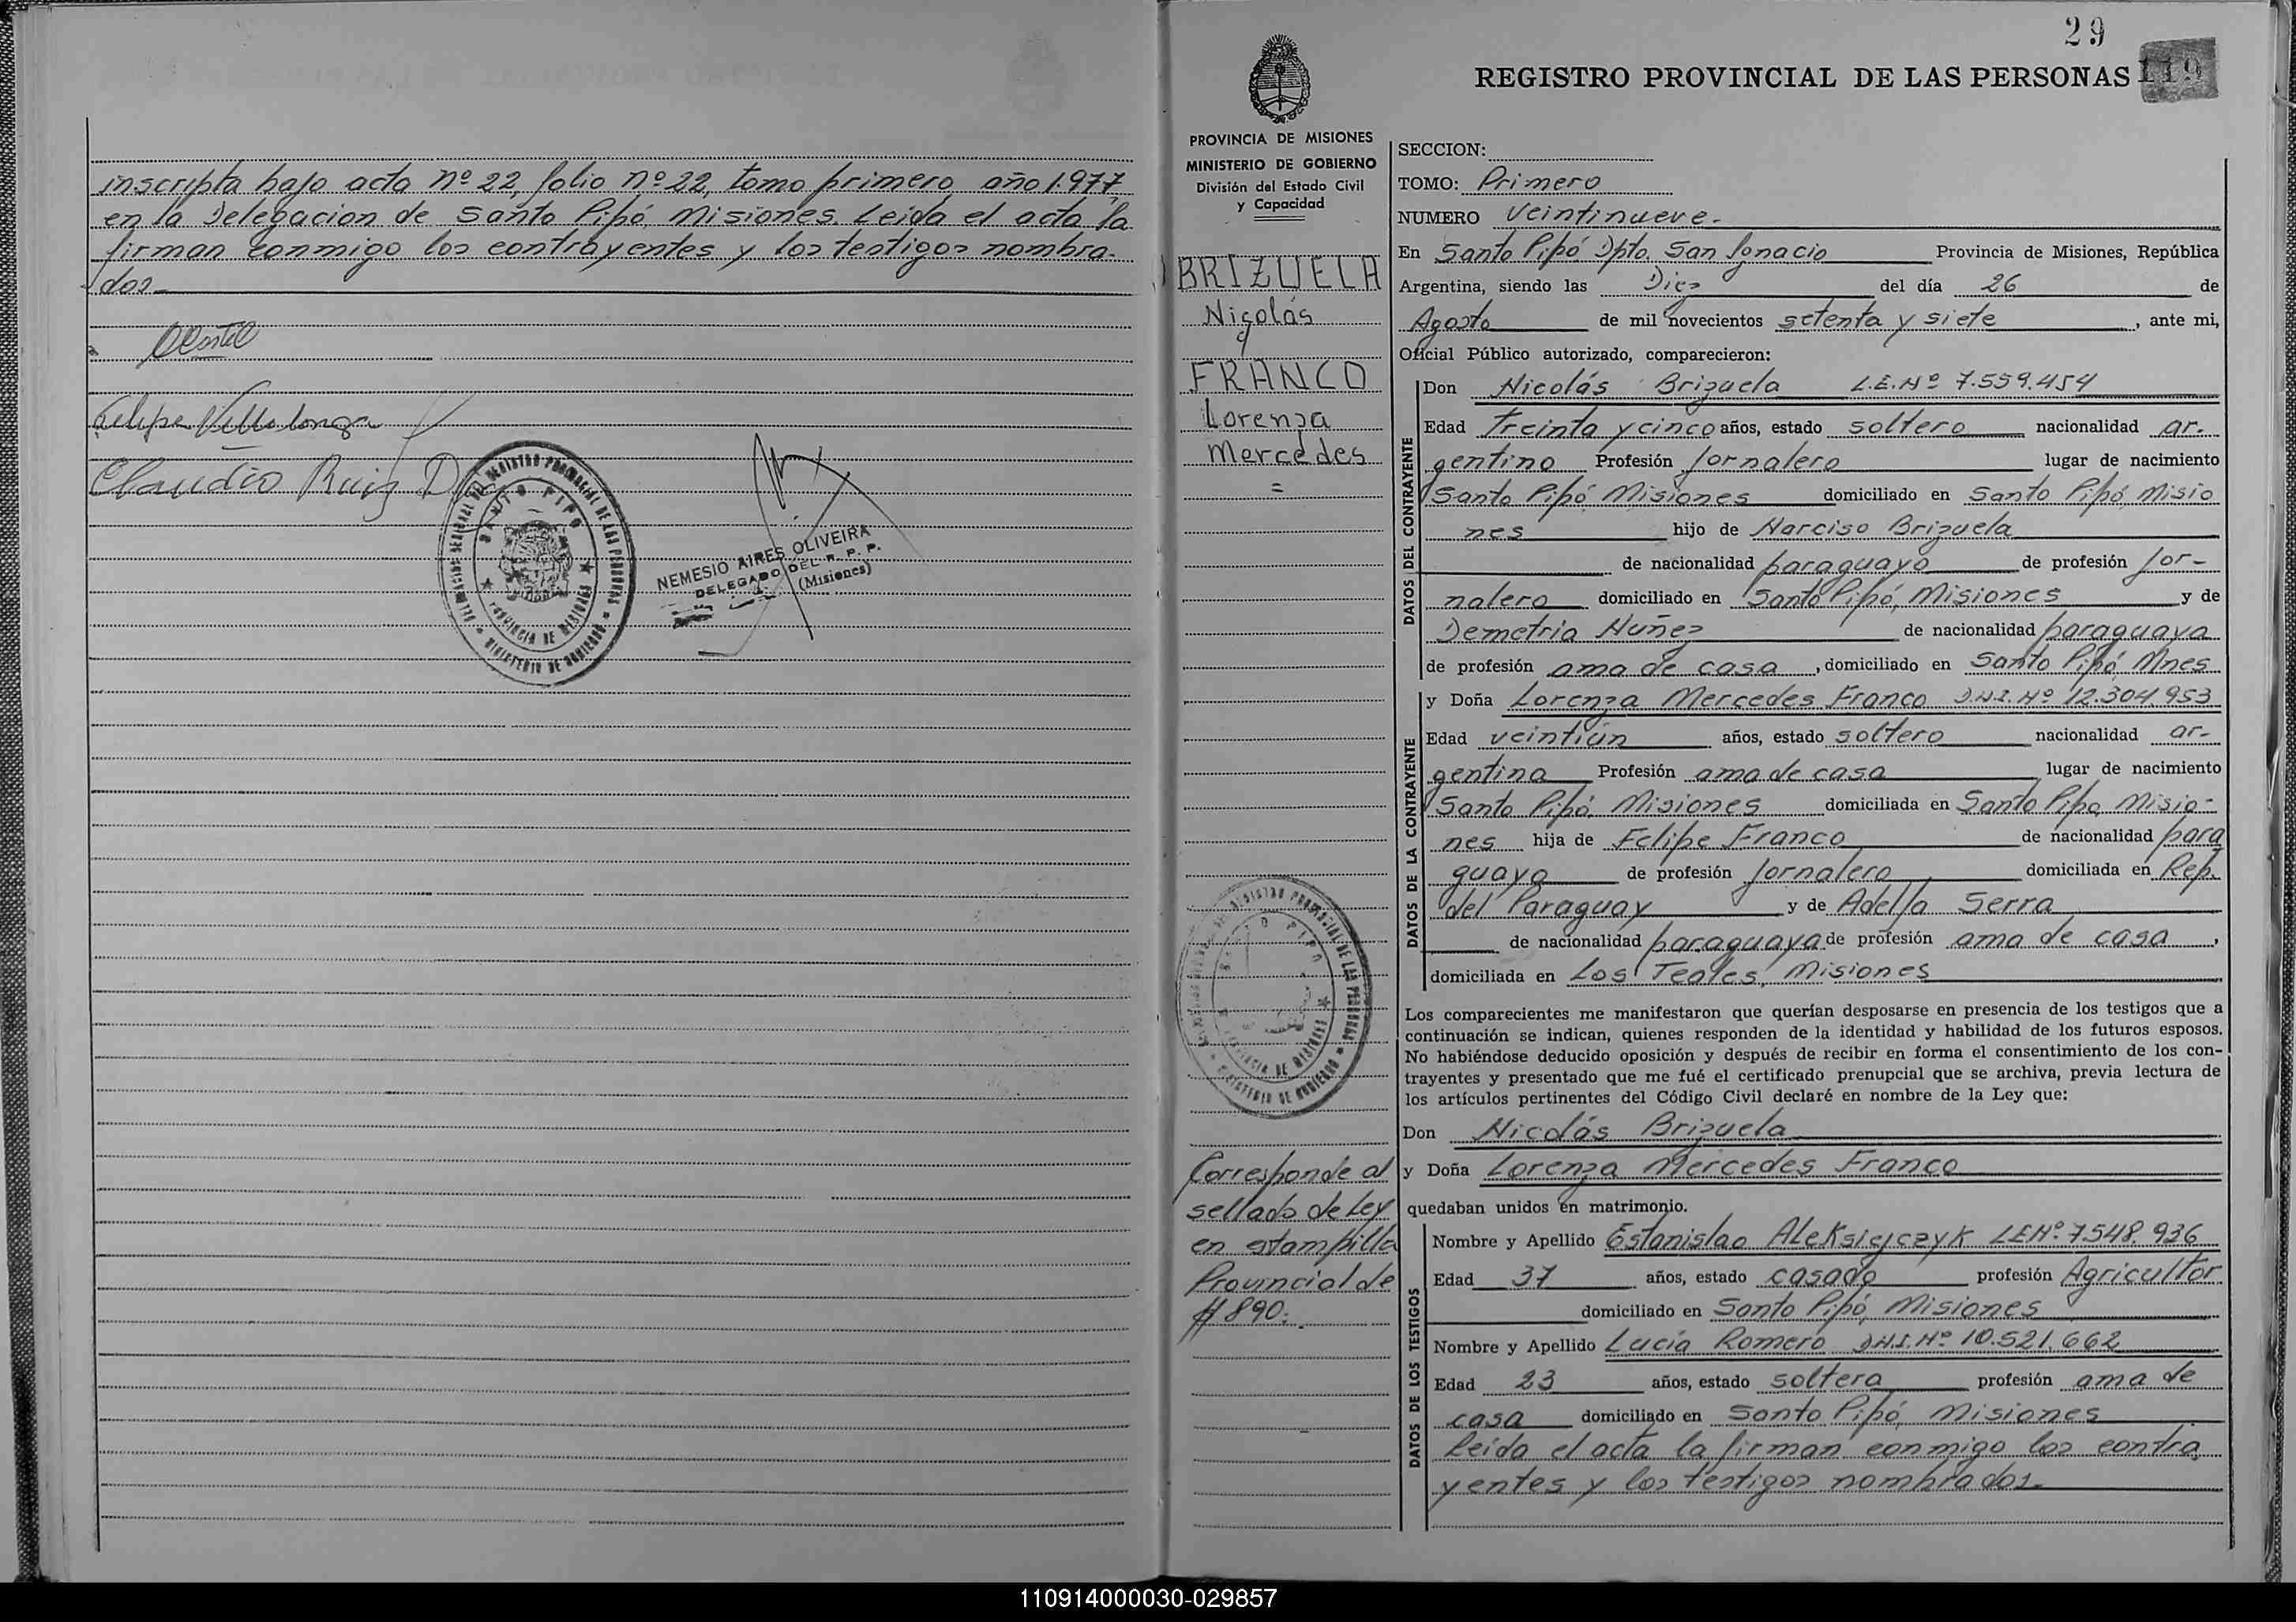 inscripta bajo acta nº 22, folio nº 22, tomo primero año 1.977,
en la Delegacion de Santo Pipó, Misiones. Leida el acta la
firman conmigo los contrayentes y los testigos nombra-
dos.-
Felipe Villalonga
Claudio Ruiz D
SANTO PIPO
PROVINCIA DE MISIONES
MINISTERIO DE GOBIERNO
NEMESIO AIRES OLIVEIRA
DELEGADO DEL R. P. P.
(Misiones)
29
REGISTRO PROVINCIAL DE LAS PERSONAS 119
PROVINCIA DE MISIONES
MINISTERIO DE GOBIERNO
División del Estado Civil
y Capacidad
BRIZUELA
Nicolás
y
FRANCO
Lorenza
Mercedes
=
Corresponde al
sellado de Ley
en estampilla
Provincial de
$ 890.
SECCION:
TOMO: Primero
NUMERO Veintinueve.-
En Santo Pipó Dpto. San Ignacio Provincia de Misiones, República
Argentina, siendo las Diez del día 26 de
Agosto de mil novecientos setenta y siete, ante mi,
Oficial Público autorizado, comparecieron:
DATOS DEL CONTRAYENTE
Don Nicolás Brizuela L.E.Nº 7.559.454
Edad Treinta y cinco años, estado soltero nacionalidad ar-
gentino Profesión Jornalero lugar de nacimiento
Santo Pipó Misiones domiciliado en Santo Pipó, Misio
nes hijo de Narciso Brizuela
de nacionalidad paraguayo de profesión Jor-
nalero domiciliado en Santo Pipó, Misiones y de
Demetria Nuñez de nacionalidad paraguaya
de profesión ama de casa, domiciliado en Santo Pipó Mnes
DATOS DE LA CONTRAYENTE
y Doña Lorenza Mercedes Franco D.N.I.Nº 12.304.953
Edad veintiún años, estado soltero nacionalidad ar-
gentina Profesión ama de casa lugar de nacimiento
Santo Pipó, Misiones domiciliada en Santo Pipo, Misio-
nes hija de Felipe Franco de nacionalidad para
guaya de profesión Jornalero domiciliada en Rep.
del Paraguay y de Adella Serra
de nacionalidad paraguaya de profesión ama de casa,
domiciliada en Los Teales, Misiones
Los comparecientes me manifestaron que querían desposarse en presencia de los testigos que a
continuación se indican, quienes responden de la identidad y habilidad de los futuros esposos.
No habiéndose deducido oposición y después de recibir en forma el consentimiento de los con-
trayentes y presentado que me fué el certificado prenupcial que se archiva, previa lectura de
los artículos pertinentes del Código Civil declaré en nombre de la Ley que:
Don Nicolás Brizuela
y Doña Lorenza Mercedes Franco
quedaban unidos en matrimonio.
DATOS DE LOS TESTIGOS
Nombre y Apellido Estanislao Aleksiejczyk LENº 7.548.936
Edad 37 años, estado casado profesión Agricultor
domiciliado en Santo Pipó, Misiones
Nombre y Apellido Lucía Romero D.N.I.Nº 10.521.662
Edad 23 años, estado soltera profesión ama de
casa domiciliado en Santo Pipó, Misiones
Leida el acta la firman conmigo los contra
yentes y los testigos nombrados.-
110914000030-029857